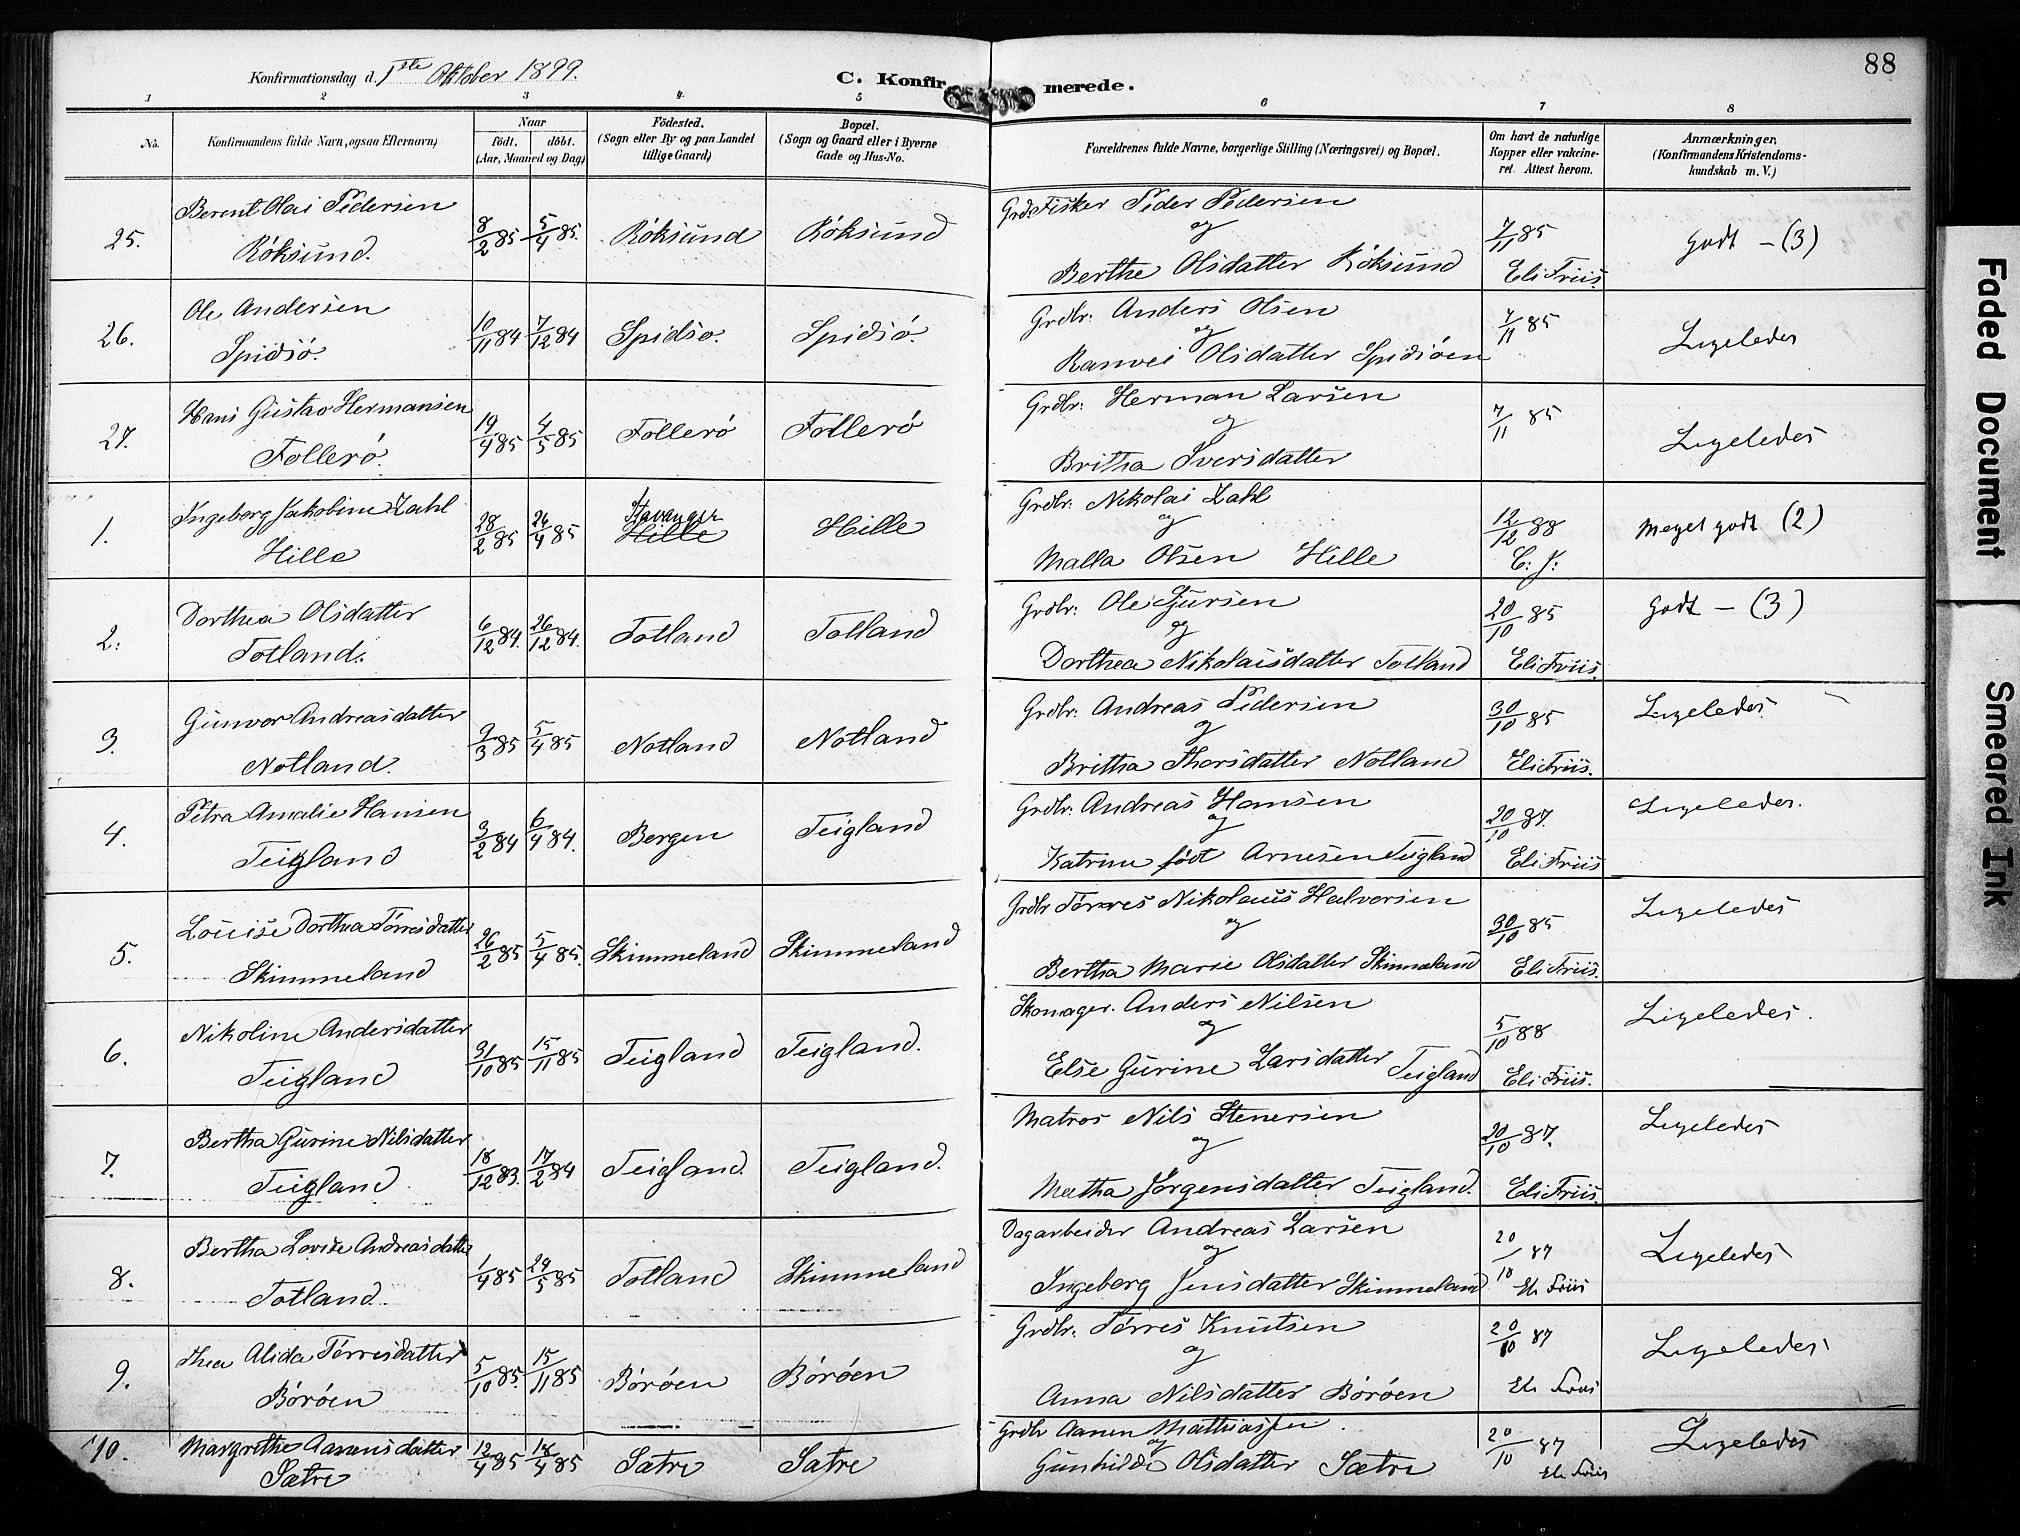 88
Konfirmationsdag d. 1ste Oktober 1899.
C. Konfirmerede.
1 2 3 4 5 6 7 8
No.
Konfirmandens fulde Navn, ogsaa Efternavn)
Naar
födt. döbt.
(Aar, Maaned og Dag)
Födested.
(Sogn eller By og paa Landet
tillige Gaard)
Bopæl.
(Sogn og Gaard eller i Byerne
Gade og Hus-No.
Forældrenes fulde Navne, borgerlige Stilling (Næringsvei) og Bopæl.
Om havt de naturlige
Kopper eller vakcine-
ret. Attest herom.
Anmærkninger,
(Konfirmandens Kristendoms-
kundskab m. V.)
25. Berent Olai Pedersen Røksund. 8/2 85 5/4 85. Røksund Røksund Grdb Fisker Peder Pedersen og Berthe Olsdatter Røksund 7/11 85 Eli Friis. Godt – (3)
26. Ole Andersen Spidsø. 10/11 84 7/12 84 Spidsø. Spidsø. Grdbr: Anders Olsen og Ranvei Olsdatter Spidsøen 7/11 85 Ligeledes
27. Hans Gustav Hermansen Follerø. 19/4 85 4/5 85 Follerø Follerø Grdbr: Herman Larsen og Britha Iversdatter 7/11 85 Ligeledes
1. Ingeborg Jakobine Zahl Hille 28/2 85 26/4 85 Stavanger Hille Hille Grdbr: Nikolai Zahl og Malla Olsen Hille 12/12 88 C. J: Meget godt (2)
2. Dorthea Olsdatter Totland. 6/12 84. 26/12 84. Totland Totland Grdbr: Ole Gjursen og Dorthea Nikolaisdatter Totland 20/10 85 Eli Friis. Godt – (3)
3. Gunvor Andreasdatter Notland. 9/3 85 5/4 85 Notland Notland Grdbr: Andreas Pedersen og Britha Thorsdatter Notland 30/10 85 Eli Friis. Ligeledes
4. Petra Amalie Hansen Teigland 3/2 84 6/4 84. Bergen Teigland Grdbr: Andreas Hansen og Katrine født Arnesen Teigland 20/10 87. Eli Friis Ligeledes.
5. Louise Dorthea Tørresdatter Skimmeland 26/2 85 5/4 85. Skimmeland Skimmeland Grdbr Tørres Nikolaus Halvorsen og Bertha Marie Olsdatter Skimmeland 30/10 85 Eli Friis. Ligeledes
6. Nikoline Andersdatter Teigland 31/10 85 15/11 85 Teigland Teigland. Skomager. Anders Nilsen og Else Gurine Larsdatter Teigland 5/10 88 Eli Friis. Ligeledes.
7. Bertha Gurine Nilsdatter Teigland 18/12 83. 17/2 84 Teigland. Teigland. Matros Nils Stenersen og Martha Jørgensdatter Teigland. 20/10 87. Eli Friis. Ligeledes
8. Bertha Lovise Andreasdatter Totland. 1/4 85 29/5 85 Totland Skimmeland Dagarbeider Andreas Larsen og Ingeborg Jensdatter Skimmeland 20/10 87 Eli Friis Ligeledes
9. Thea Alida Tørresdatter Børøen 5/10 85. 15/11 85 Børøen Børøen Grdbr: Tørres Knutsen og Anna Nilsdatter Børøen 20/10 87 Eli Friis Ligeledes
10. Margrethe Aanensdatter Sætre 12/4 85 18/4 85 Sætre Sætre Grdbr Aanen Mathiassen. og Gunhilde Olsdatter Sætre 20/10 87 Eli Friis Ligeledes
Faded Document
Smeared Ink